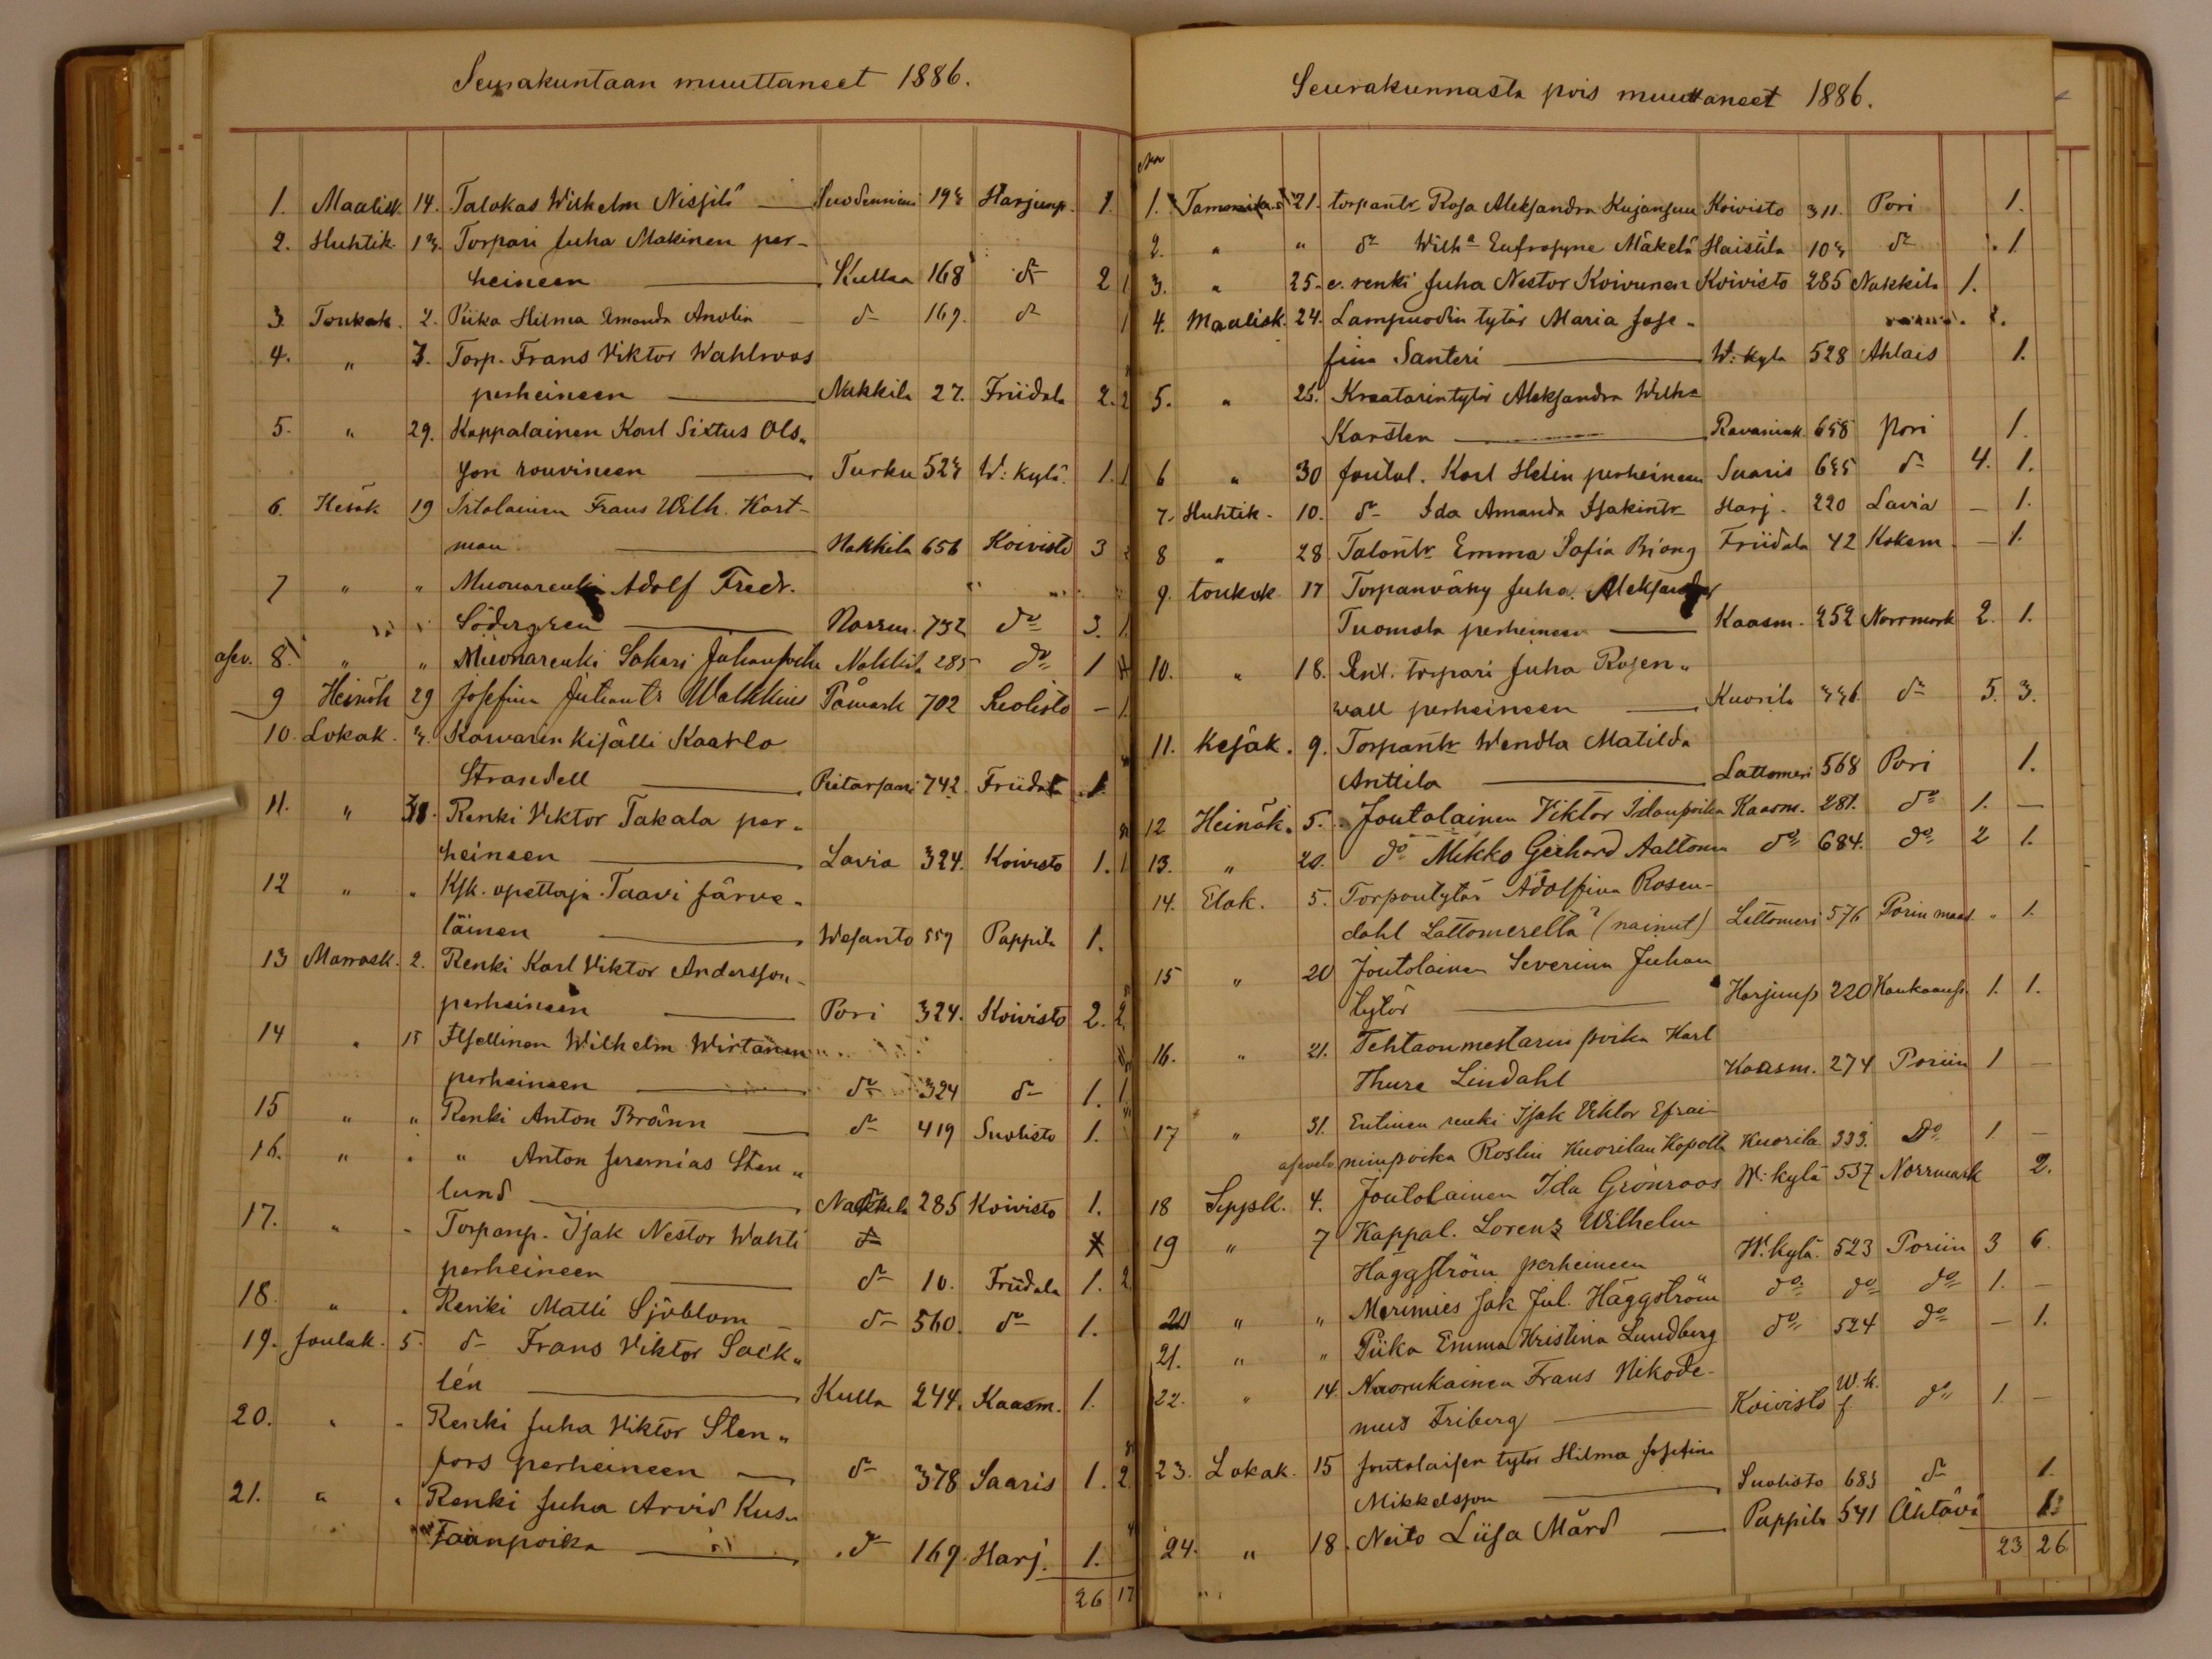 Seurakuntaan muuttaneet 1886.
1. Maalisk. 14. Talokas Wilhelm Nisfilä Suodenniemi 193 Harjunp. 1.
2. Huhtik. 13. Torpari Juha Makinen per-
heineen Kullaa 168 do 2 1
3. Toukok. 2. Piika Hilma Amanda do 169. do 1
4. " 3. Torp. Frans Viktor Wahlroos
perheineen Nakkila 27. Friidala 2. 2
5. " 29. Kappalainen Karl Sixtus Ols-
son rouvineen Turku 523 W: kylä. 1. 1
6. Kesäk 19 Irtolainen Frans Wilh. Hart-
man Nakkila 656 Koivisto 3
7 " " Muonarenki Adolf Fredr.
Södergren Norrm. 732 do 3. 1.
asev. 8. " " Muonarenki Sakari Juhanpoika Nakkila 285 do 1
9 Heinäk 29 Josefina Juhantr Walkkius Påmark 702 - 1.
10. Lokak. 3. Karvarin kisälli Kaarlo
Strandell Pietarsaari 742. Friidala 1.
11. " 31. Renki Viktor Takala per-
heineen Lavia 324. Koivisto 1. 1
12 " " Ksk. opettaja Taavi Järve-
läinen Wesanto 559 Pappila 1.
13 Marrask. 2. Renki Karl Viktor Andersson
perheineen Pori 324. Koivisto 2. 2.
14 " 15 Itsellinen Wilhelm Wirtanen
perheineen do 324 do 1. 1.
15 " " Renki Anton Bränn do 419 Suolisto 1.
16. " " " Anton Jeremias Sten-
lund Nakkila 285 Koivisto 1.
17. " " Torpanp. Isak Nestor Wahti
perheineen do 10. Friidala 1. 2
18. " " Renki Matti Sjöblom do 560. do 1.
19. Jouluk. 5. do Frans Viktor Sack-
lén Kulla 244. Kaasm. 1.
20. " " Renki Juha Viktor Sten-
fors perheineen do 378 Saaris 1. 2.
21. " " Renki Juha Arvid Kus-
taanpoika do 169. Harj. 1.
26 17
Seurakunnasta pois muuttaneet 1886.
Nro
1. Tammik. 21. torpantr Rosa Aleksandra Kujansuu Koivisto 311. Pori 1.
2. " " do Wilha Eufrosyne Mäkelä Haistila 103 do 1
3. " 25. e. renki Juha Nestor Koivunen Koivisto 285 Nakkila 1.
4. Maalisk. 24. Lampuodin tytär Maria Jose-
fina Santeri W: kyla 528 Ahlais 1.
5. " 25. Kraatarintytär Aleksandra Wilha
Karsten Ravaniak. 658 Pori 1.
6 " 30 Joutol. Karl Helin perheineen Saaris 635 do 4. 1.
7. Huhtik. 10. do Ida Amanda Isakintr Harj. 220 Lavia - 1.
8 " 28 Talontr Emma Sofia Björg Friidala 42 Kokem. - 1.
9. toukok 17 Torpanväky Juha Aleksander
Tuomola perheineen Kaasm. 252 Norrmark 2. 1.
10. " 18. Ent. torpari Juha Rosen-
wall perheineen Kuorila 336 do 5. 3.
11. kesäk. 9. Torpantr Wendla Matilda
Anttila Lattomeri 568 Pori 1.
12 Heinäk. 5. Joutolainen Viktor Kaasm. 281. do 1. -
13. " 20. do Mikko Gerhard Aaltonen do 684. do 2 1.
14. Elok. 5. Torpantytär Adolfina Rosen-
dahl Lattomerelta (nainut) Lattomeri 576 Porin maas. " 1.
15 " 20 Joutolainen Severina Juhan
tytär Harjunp 220 Kankaanp. 1. 1.
16. " 21. Tehtaanmestarin poika Karl
Thure Lindahl Kaasm. 274 Poriin 1 -
17 " 31. Entinen renki Isak Viktor Efrai-
asevelv. minpoika Roslin Kuorilan Kopolta Kuorila 333. Do 1 -
18 Syysk. 4. Joutolainen Ida Grönroos W: kylä 537 Norrmark 2.
19 " 7 Kappal. Lorenz Wilhelm
Häggström perheineen W: kylä. 523 Poriin 3 6.
20 " " Merimies Jak Jul. Häggström do do do 1. -
21. " " Piika Emma Kristina Lundberg do 524 do - 1.
22. " 14. Nuorukainen Frans Nikode-
mus Friberg Koivisto W.k. f do 1. -
23. Lokak. 15 Joutolaisen tytär Hilma Josefina
Mikkelsson Suolisto 683 do 1.
24. " 18. Neito Liisa Mård Pappila 541 Ähtävä 1.
23 26